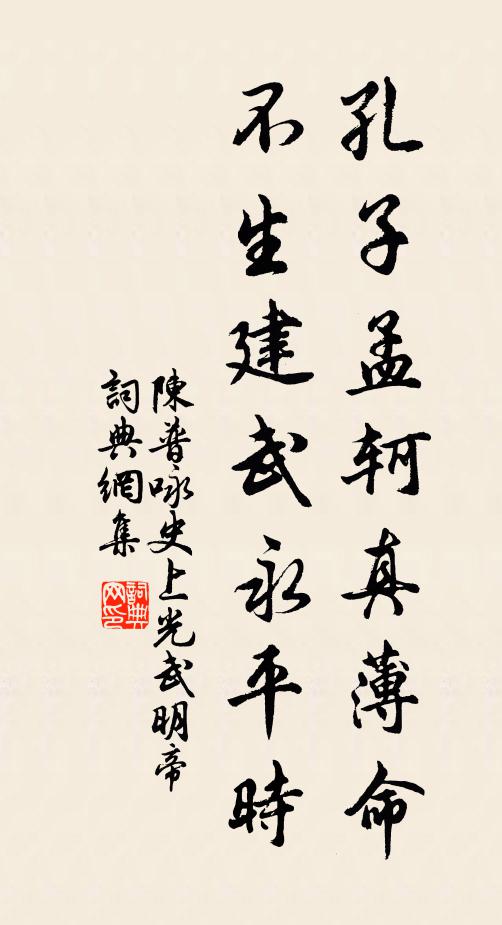 孔子孟轲真薄命
不生建武永平時
陳普咏史上光武明帝
詞典網集
詞典网印